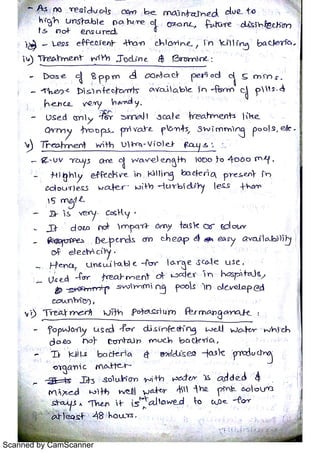 - As no residuals can be maintained due to
high unstable nature of ozone, future disinfection
is not ensured
- Less effecient than chlorine, in killing bacteria.
iv) Treatment with Iodine & Bromine:
- Dose of 8 ppm & contact period of 5 mins.
- These Disinfectants available in form of pills. &
hence very handy.
- Used only for small scale treatments like
army troops. private plants, swimming pools, etc.
v) Treatment with Ultra-Violet Rays:
- rays are of wavelength 1000 to 4000 mμ.
- Highly effective in killing bacteria present in
colourless water with turbidity less than
15 mg/l
- It is very costly.
- It does not impart any taste or odour
- Depends on cheap & easy availability
of electricity.
- Hence, unsuitable for large scale use.
- Used for treatment of water in hospitals,
swimming pools in developed
countries,
vi) Treatment with Potassium Permanganate:
- Popularly used for disinfecting well water which
does not contain much bacteria,
- It kills bacteria & oxidises taste producing
organic matter
- Its solution with water is added &
mixed with well water till the pink colour
stays. Then it is allowed to use for
atleast 48 hours.
Scanned by CamScanner